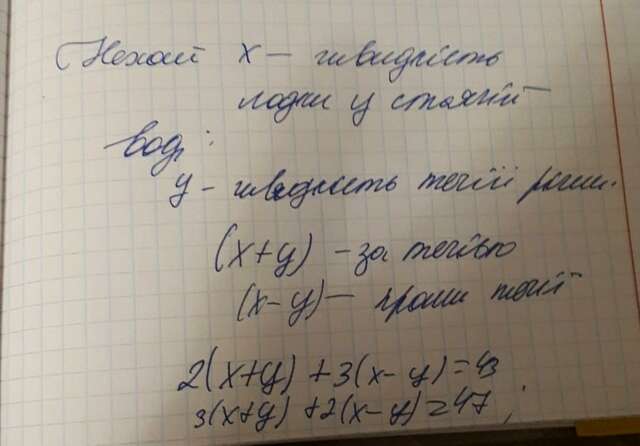 Нехай x – швидкість
лодки у стоячій
воді;
y - швидкость течії ріки.
(x+y) – за течією
(x-y) – проти течії
2(x+y) + 3(x-y) = 43
3(x+y) + 2(x-y) = 47;